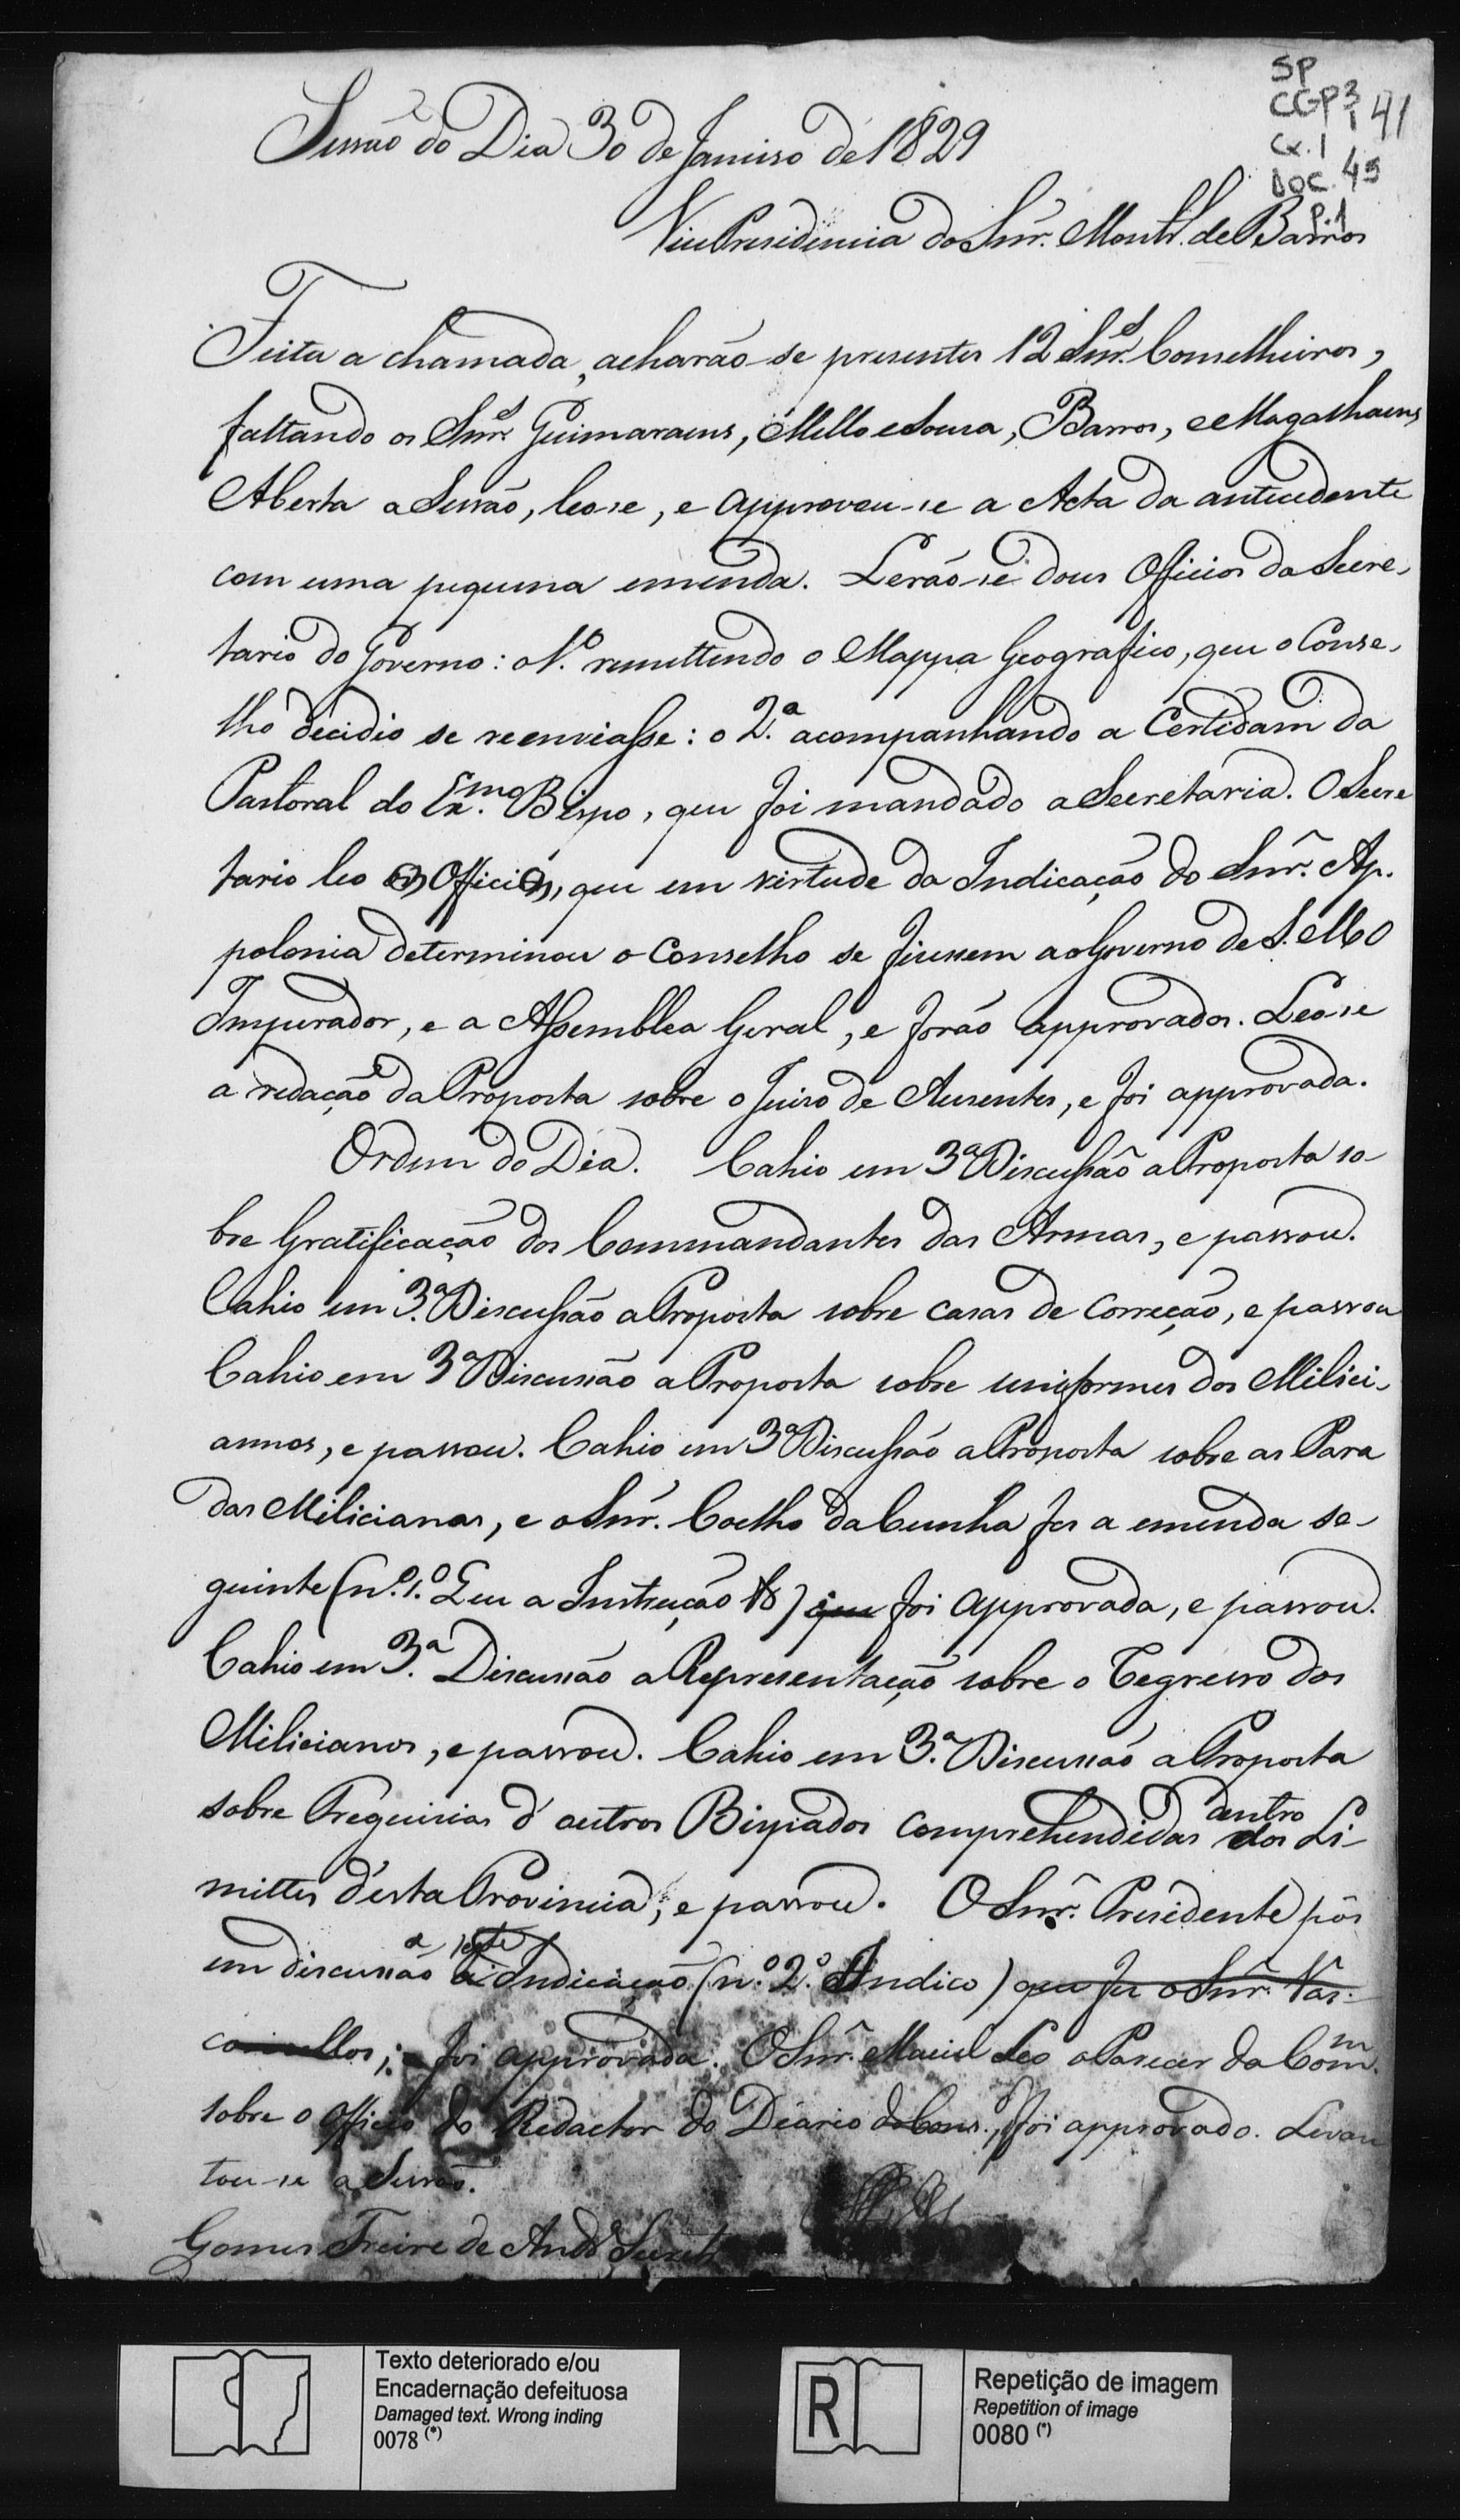 SP
CGP3
1 41
Cx. 1
DOC. 45
P. 1
Sessão do Dia 30 de Janeiro de 1829
VicePresidencia do Snr. Montr. de Barros
Feita a chamada, acharão-se presentes 12 Snrs. Conselheiros,
faltando os Snrs. Guimaraens, Mello e Sousa, Barros, e Magalhaens
Aberta a Sessão, leo-se, e approvou-se a Acta da antecedente
com uma pequena emenda. Lerão-se dous Officios do Secre-
tario do Governo: o 1.º remettendo o Mappa Geografico, que o Conse-
lho decidio se reenviasse: o 2.º acompanhando a Certidam da
Pastoral do Exmo. Bispo, que foi mandado a Secretaria. O Secre
tario leo os Officios, que em virtude da Indicação do Snr. Ap-
polonia determinou o Conselho se fizessem ao Governo de S. M. O
Imperador, e a Assemblea Geral, e forão approvados. Leo-se
a redacção da Proposta sobre o Juiso de Ausentes, e foi approvada.
Ordem do Dia. Cahio em 3.ª Discussão a Proposta so-
bre Gratificação dos Commandantes das Armas, e passou.
Cahio em 3.ª Discussão a Proposta sobre casas de Correção, e passou
Cahio em 3.ª Discussão a Proposta sobre uniformes dos Milici-
annos, e passou. Cahio em 3.ª Discussão a Proposta sobre as Para
das Milicianas, e o Snr. Coelho da Cunha fes a emenda se-
guinte (n.º 1.º Que a Instrução &) que foi approvada, e passou.
Cahio em 3.ª Discussão a Representação sobre o Regresso dos
Milicianos, e passou. Cahio em 3.ª Discussão a Proposta
sobre Freguisias d'outros Bispados comprehendidas dentro dos Li-
mittes d'esta Provincia, e passou. O Snr. Presidente pôs
em discussão a Indicação (n.º 2.º Indico) que fes o Snr. Vas-
concellos; e foi approvada. O Snr. Maciel Leo o Parecer da Comm.
sobre o Officio do Redactor do Diario do Cons.º, foi approvado. Levan
tou-se a Sessão.
Gomes Freire de Andr.e Secret.
Texto deteriorado e/ou
Encadernação defeituosa
Damaged text. Wrong inding
0078 (*)
R
Repetição de imagem
Repetition of image
0080 (*)